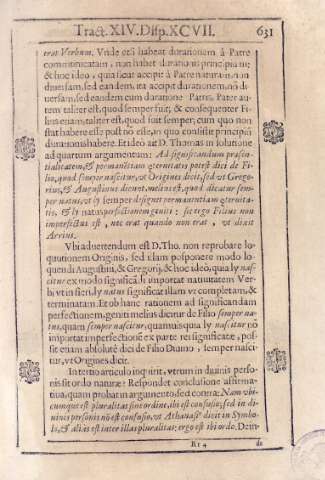 Tract. XIV. Disp. XCVII. 631
erat Verbum. Vnde cũ habeat durationem à Patre
communicatam, non habet durationis principiũ;
& hoc ideo, quia sicut accipit à Patre naturam, non
diuersam, sed eandem, ita accipit durationem, nõ di-
uersam, sed eandem cum duratione Patris. Pater au-
tem taliter est, quod semper fuit; & consequenter Fi-
lius etiam, taliter est, quod fuit semper; cum quo non
stat habere esse post nõ esse, in quo consistit principiũ
durationis habere. Et ideò ait D. Thomas in solutione
ad quartum argumentum: Ad significandum præsen-
tialitatem, & permanentiam æternitatis potest dici de Fi-
lio, quod semper nascitur, vt Origines dicit, sed vt Grego-
rius, & Augustinus dicunt, melius est, quod dicatur sem-
per natus, vt ly semper designet permanentiam æternita-
tis, & ly natus perfectionem geniti: sic ergo Filius nec
imperfectus est, nec erat quando non erat, vt dixit
Arrius.
Vbi aduertendum est D. Tho. non reprobare lo-
quutionem Originis, sed illam posponere modo lo-
quendi Augustini, & Gregorij, & hoc ideò, quia ly nas-
citur ex modo significãdi importat natiuitatem Ver-
bi vt in fieri, ly natus significat illam vt completam, &
terminatam. Et ob hanc rationem ad significandam
perfectionem, geniti melius dicitur de Filio semper na-
tus, quam semper nascitur, quamuis quia ly nascitur nõ
importat imperfectionẽ ex parte rei significatæ, pos-
sit etiam absolutè dici de Filio Diuino, semper nasci-
tur, vt Origines dicit.
In tertio articulo inquirit, vtrum in diuinis perso-
nis sit ordo naturæ? Respondet conclusione affirma-
tiua, quam probat in argumento, sed contra: Nam vbi-
cumque est pluralitas sine ordine, ibi est confusio; sed in di-
uinis personis nõ est confusio, vt Athanas. dicit in Symbo-
lo, & aliàs est inter illas pluralitas; ergo est ibi ordo. Dein-
Rr 4 de